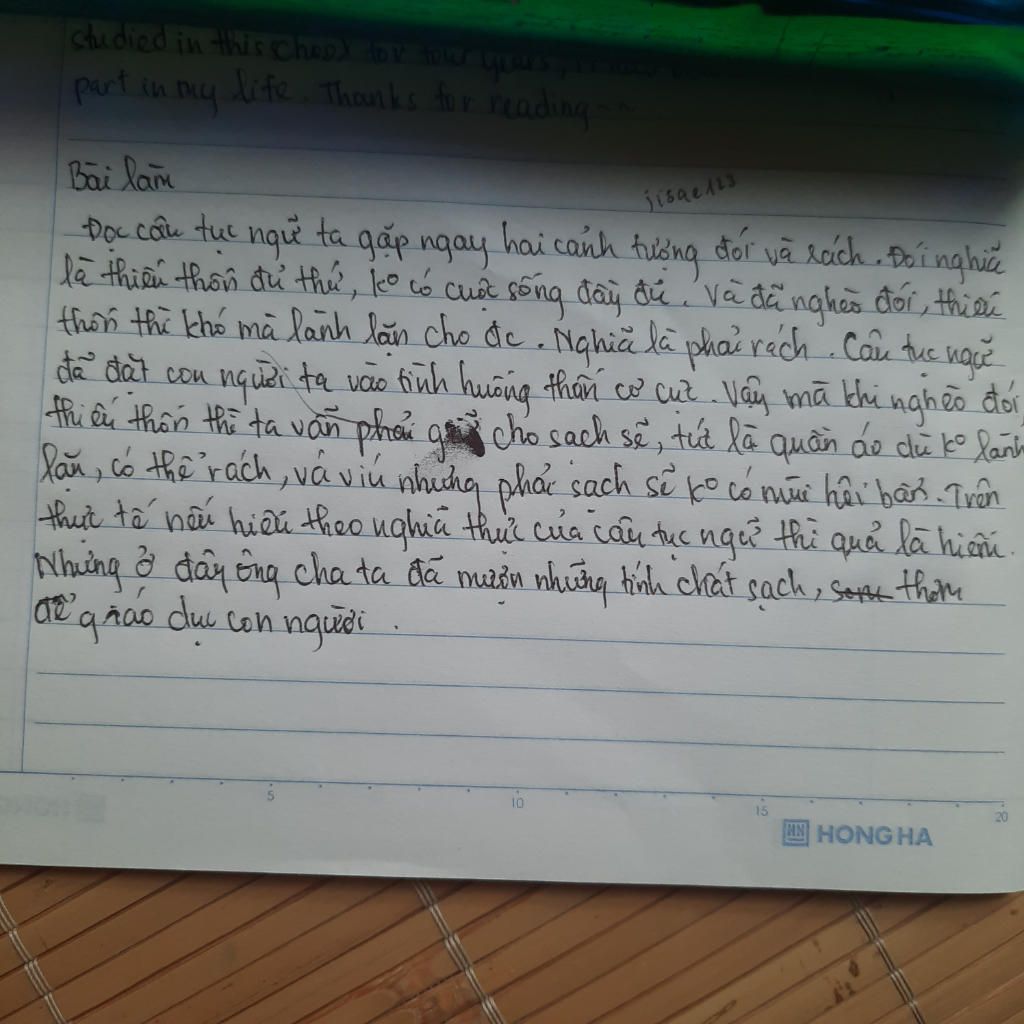 studied in this school for four years, it has
part in my life. Thanks for reading ~~
Bài làm
jisae123
Đọc câu tục ngữ ta gặp ngay hai cảnh tượng đói và rách. Đói nghĩa
là thiếu thốn đủ thứ, ko có cuộc sống đầy đủ. Và đã nghèo đói, thiếu
thốn thì khó mà lành lặn cho đc. Nghĩa là phải rách. Câu tục ngữ
đã đặt con người ta vào tình huống thân cơ cực. Vậy mà khi nghèo đói,
thiếu thốn thì ta vẫn phải giữ cho sạch sẽ, tức là quần áo dù ko lành
lặn, có thể rách, vá víu nhưng phải sạch sẽ ko có mùi hôi bẩn. Trên
thực tế nếu hiểu theo nghĩa thực của câu tục ngữ thì quả là hiếm.
Nhưng ở đây ông cha ta đã mượn những tính chất sạch, thơm
để giáo dục con người.
5 10 15 20
HN HONG HA